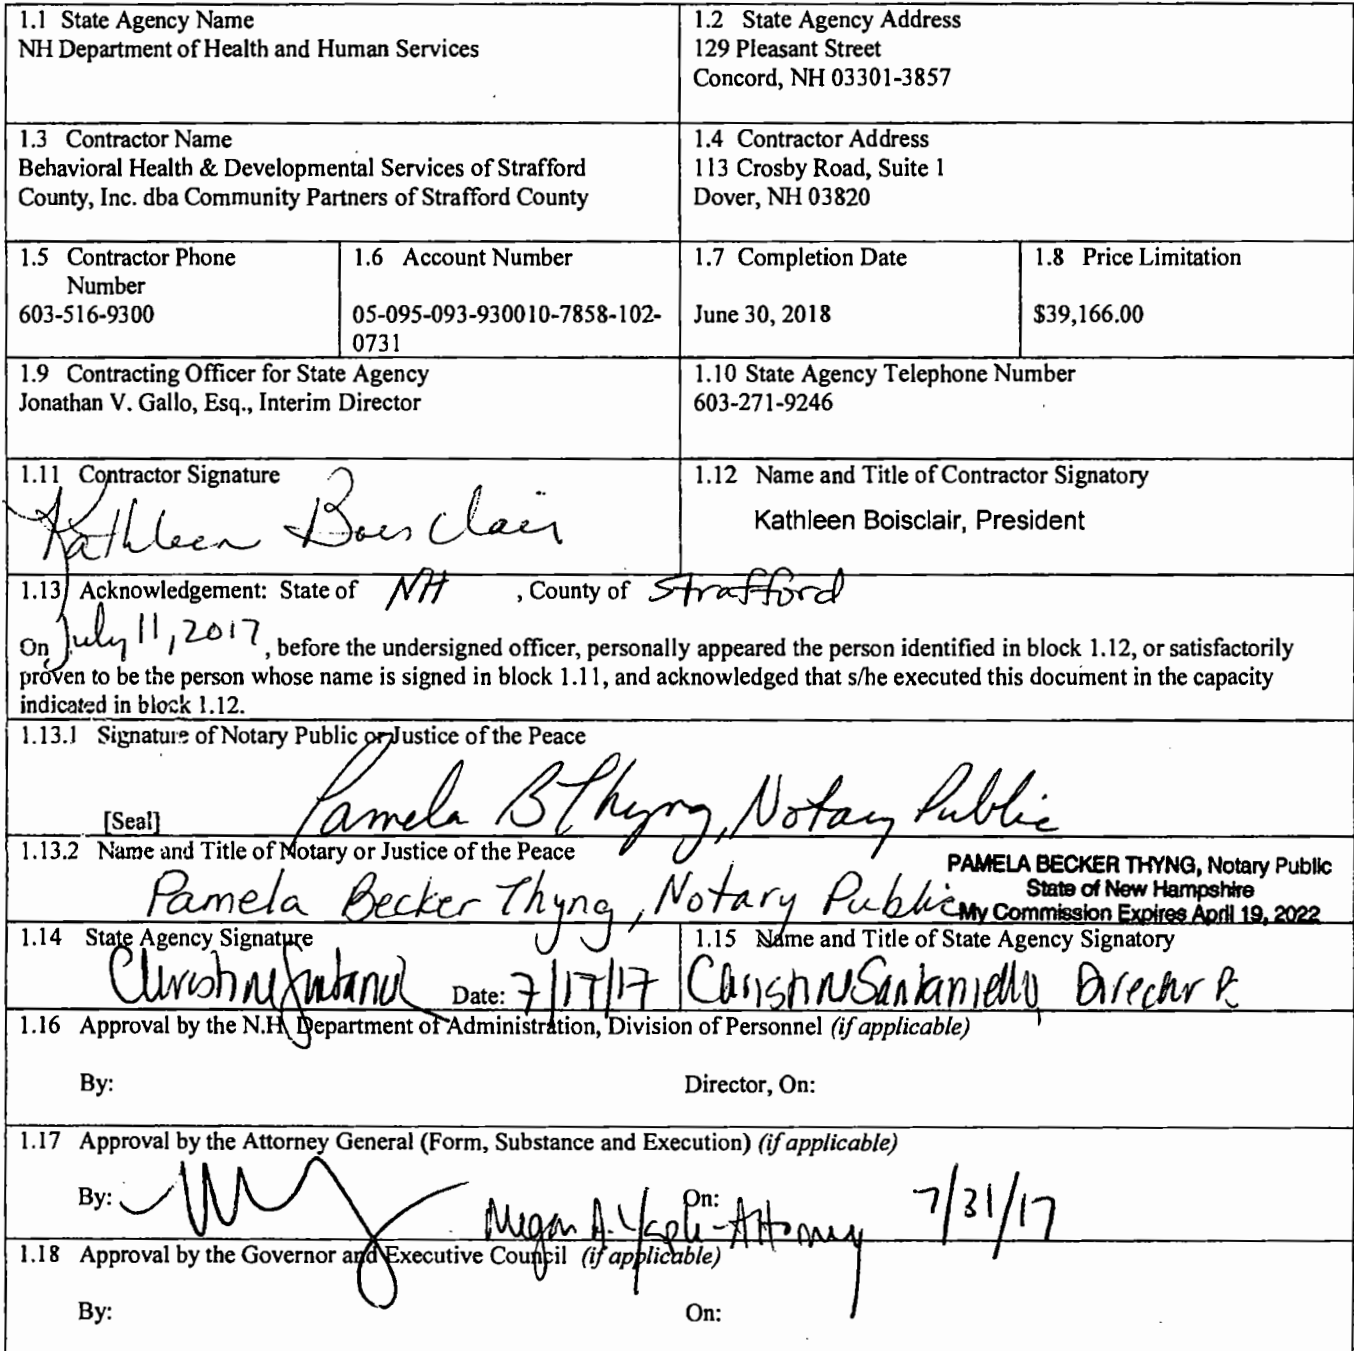 1.1 State Agency Name
NH Department of Health and Human Services
1.2 State Agency Address
129 Pleasant Street
Concord, NH 03301-3857
1.3 Contractor Name
Behavioral Health & Developmental Services of Strafford
County, Inc. dba Community Partners of Strafford County
1.4 Contractor Address
113 Crosby Road, Suite 1
Dover, NH 03820
1.5 Contractor Phone
Number
603-516-9300
1.6 Account Number
05-095-093-930010-7858-102-
0731
1.7 Completion Date
June 30, 2018
1.8 Price Limitation
$39,166.00
1.9 Contracting Officer for State Agency
Jonathan V. Gallo, Esq., Interim Director
1.10 State Agency Telephone Number
603-271-9246
1.11 Contractor Signature
Kathleen Boisclair
1.12 Name and Title of Contractor Signatory
Kathleen Boisclair, President
1.13 Acknowledgement: State of NH , County of Strafford
On July 11, 2017 , before the undersigned officer, personally appeared the person identified in block 1.12, or satisfactorily
proven to be the person whose name is signed in block 1.11, and acknowledged that s/he executed this document in the capacity
indicated in block 1.12.
1.13.1 Signature of Notary Public or Justice of the Peace
Pamela B Thyng, Notary Public
[Seal]
1.13.2 Name and Title of Notary or Justice of the Peace
Pamela Becker Thyng, Notary Public
PAMELA BECKER THYNG, Notary Public
State of New Hampshire
My Commission Expires April 19, 2022
1.14 State Agency Signature
Date: 7/17/17
1.15 Name and Title of State Agency Signatory
Christine Santaniello Director
1.16 Approval by the N.H. Department of Administration, Division of Personnel (if applicable)
By: Director, On:
1.17 Approval by the Attorney General (Form, Substance and Execution) (if applicable)
By: Megan A. On: - Attorney 7/31/17
1.18 Approval by the Governor and Executive Council (if applicable)
By: On: